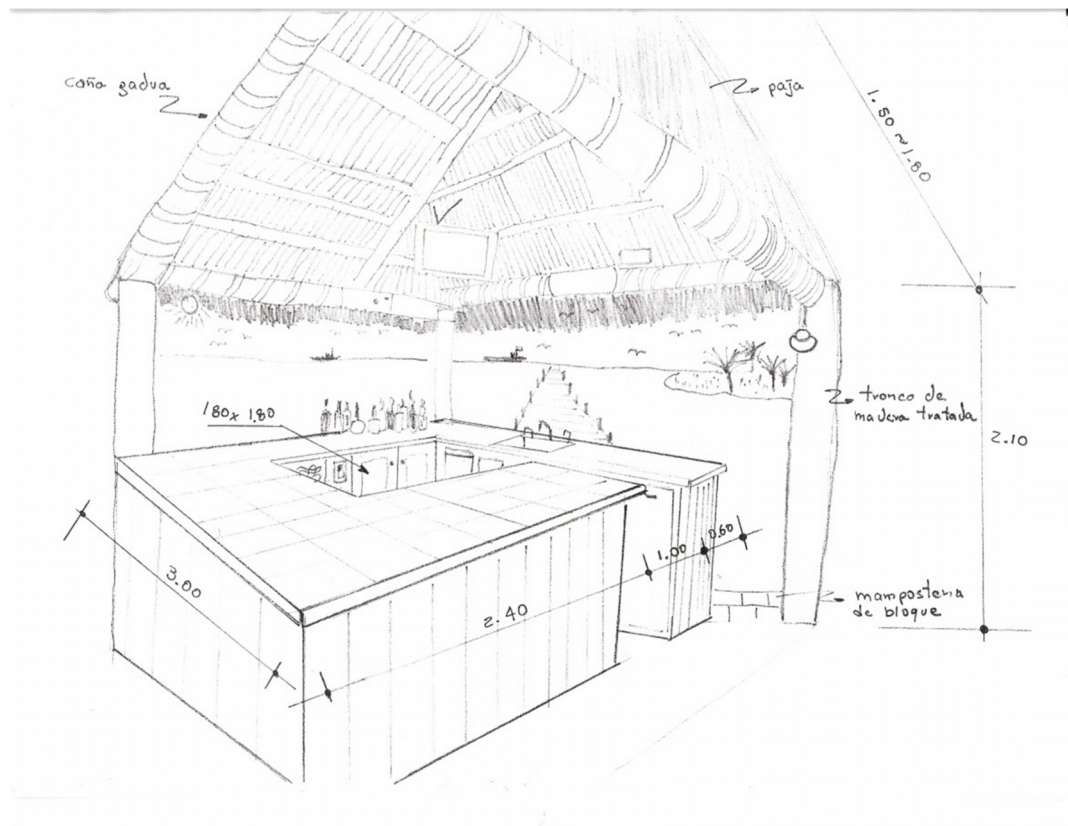 caña gadua
paja
1.50 ≈ 1.80
180 x 1.80
tronco de
madera tratada
2.10
3.00
2.40
1.00
0.60
mamposteria
de bloque